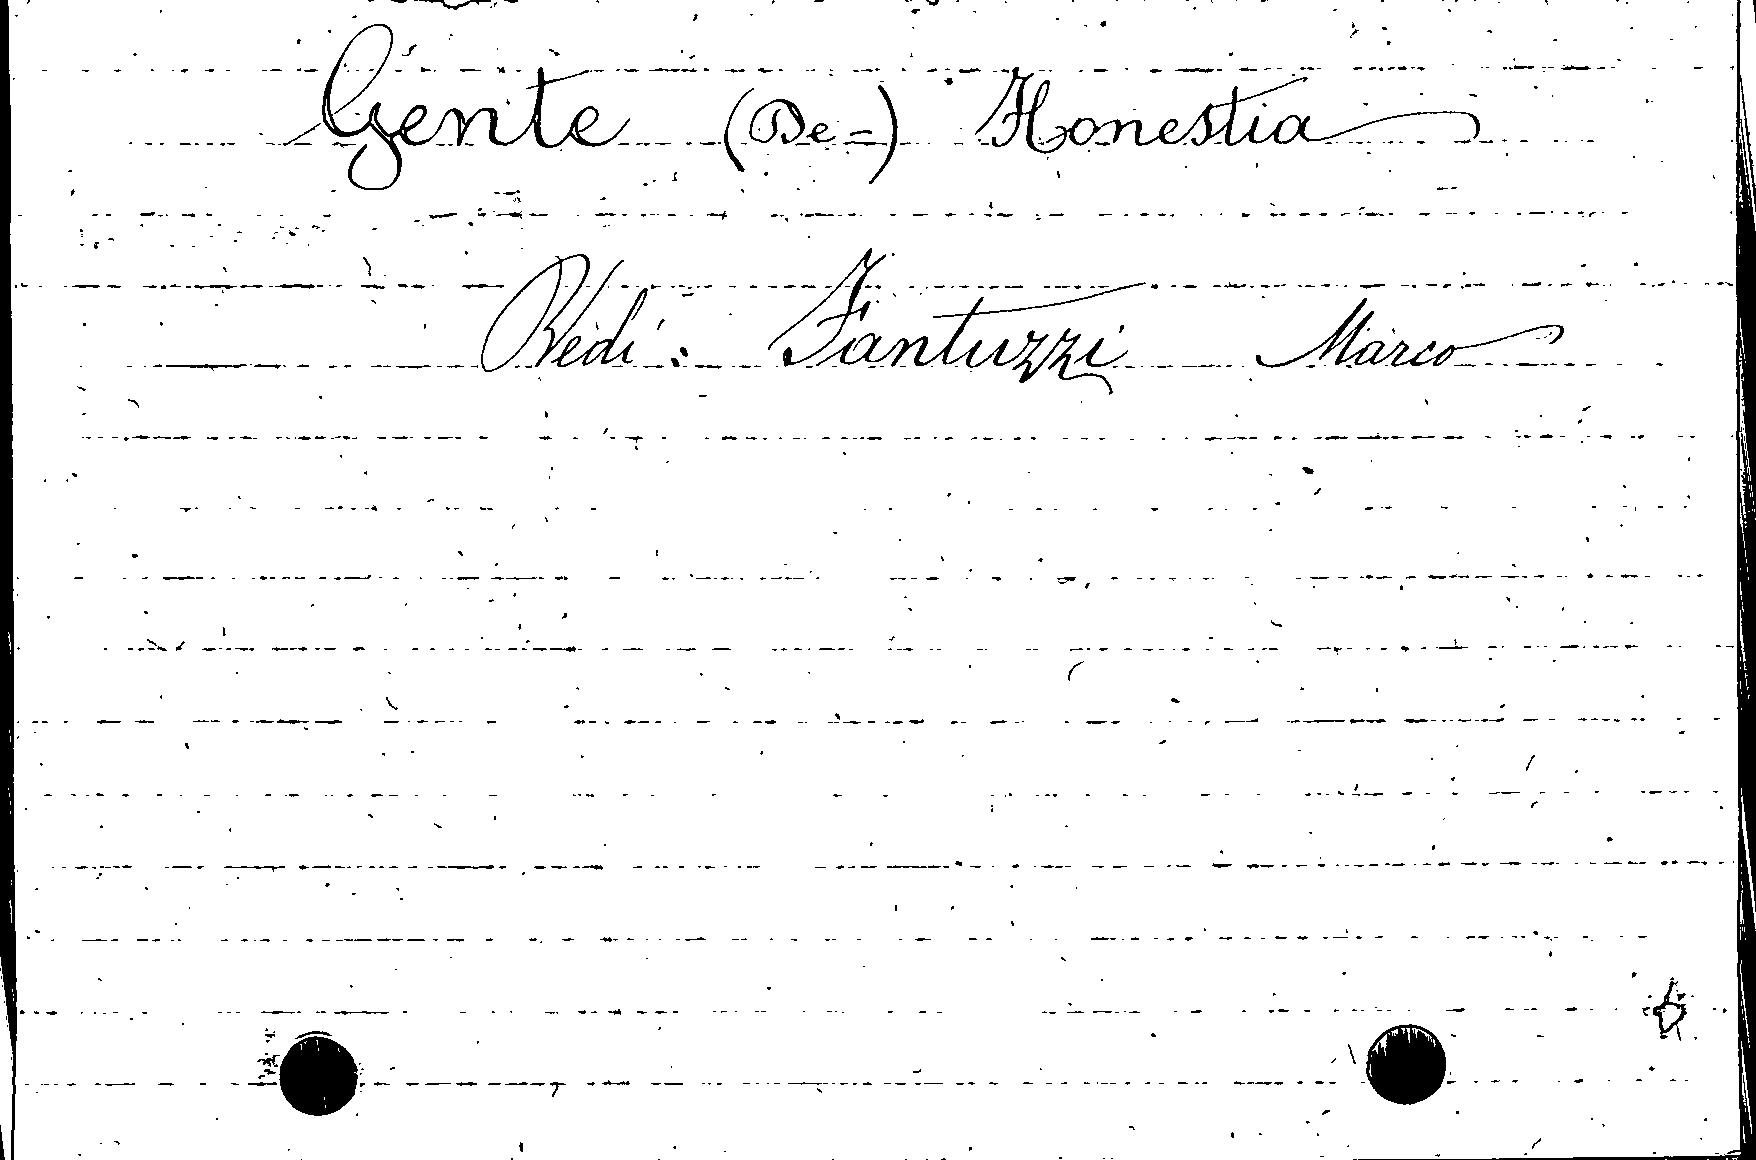 Gente (De=) Honestia
Vedi: Fantuzzi Marco